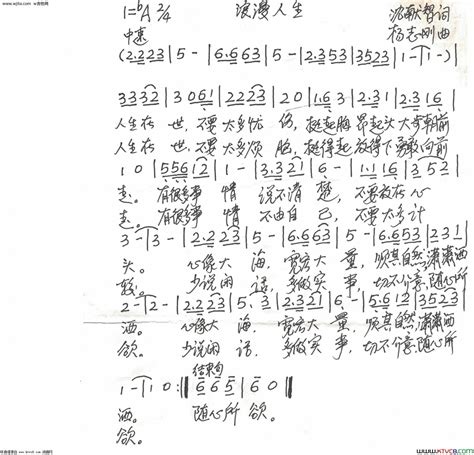 www.wpita.com w吉他网
1=bA 2/4 浪漫人生 沈献智词
中速 杨志刚曲
(2.223|5-|6.663|5-|2.353|3523|1-|1-)|
3332|3 061|2223|20|1.63|2.31|2.316|
人生在世,不要太多忧伤,挺起胸昂起头大步朝前
人生在世,不要太多烦恼,挺得起放得下勇敢向前
10|55612|1-|3.321|1-|1.116|3 52|
走。有很多事情说不清楚,不要放在心
走。有很多事情不由自己,不要太多计
3-|3-|2.223|5-|6.663|5-|6.653|231|
头。心像大海,宽宏大量,顺其自然,潇潇洒
较。少说闲话,多做实事,切不介意,随心所
2-|2-|2.223|5.3|2.321|6.|5.612|3523|
洒。心像大海,宽宏大量,顺其自然,潇潇洒
欲。少说闲话,多做实事,切不介意,随心所
结束句
1-|10:‖665|60‖
洒。随心所欲。
欲。
www.KTVC8.com